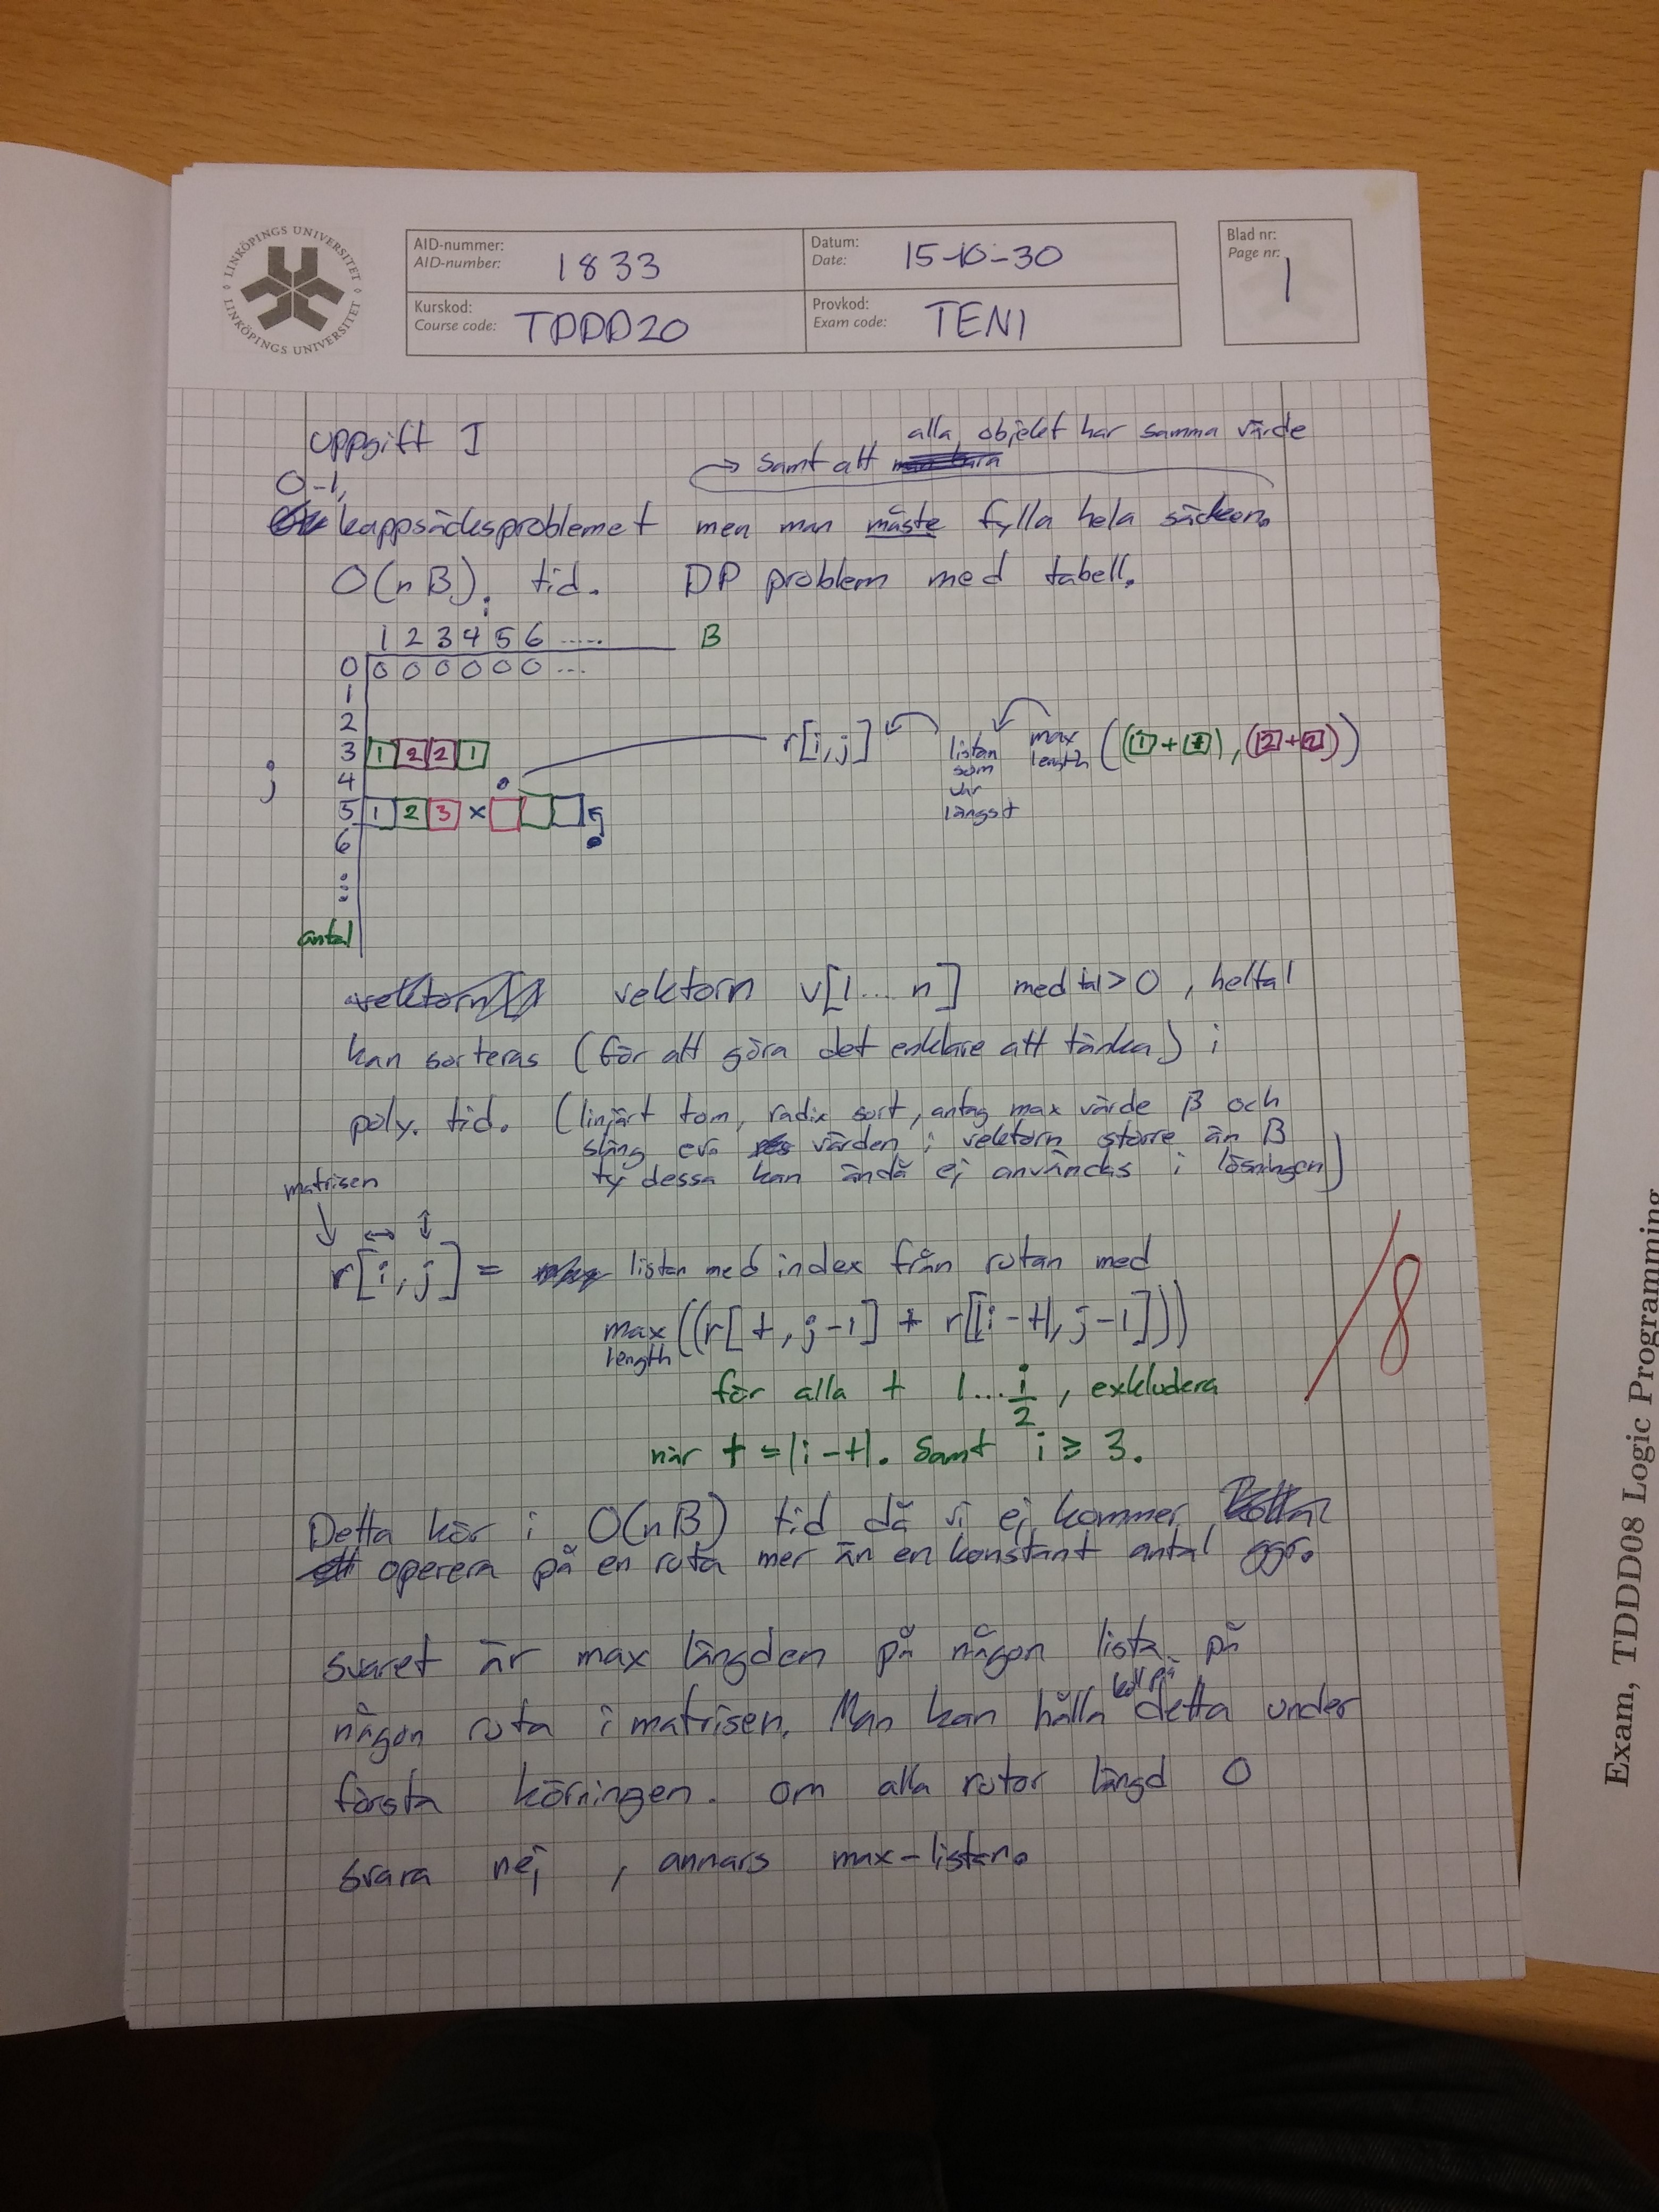 LINKÖPINGS UNIVERSITET
LINKÖPINGS UNIVERSITET
AID-nummer:
AID-number: 1833
Datum:
Date: 15-10-30
Blad nr:
Page nr: 1
Kurskod:
Course code: TDDD20
Provkod:
Exam code: TEN1
Uppgift 1
alla objekt har samma värde
→ samt att
0-1,
kappsäcksproblemet men man måste fylla hela säcken.
O(nB). tid. DP problem med tabell.
i
1 2 3 4 5 6 ..... B
0 0 0 0 0 0 0 ...
1
2
3 1 2 2 1
r[i,j] listan som var längst max length ((1+1), (2+2))
j
4
5 1 2 3 x
6
antal
vektorn
vektorn v[1...n] med tal > 0, heltal
kan sorteras (för att göra det enklare att tänka) i
poly. tid. (linjärt tom, radix sort, antag max värde B och
släng ev. värden i vektorn större än B
ty dessa kan ändå ej användas i lösningen)
matrisen
↓ ↔ ↕
r[i,j] = listan med index från rutan med
max length ((r[t, j-1] + r[|i-t|, j-1]))
för alla t 1... i/2, exkludera
när t = |i-t|. Samt i ≥ 3.
/8
Detta kör i O(nB) tid då vi ej kommer
operera på en ruta mer än en konstant antal ggr.
svaret är max längden på någon lista på
någon ruta i matrisen. Man kan hålla koll på detta under
första körningen. om alla rutor längd 0
svara nej, annars max-listan.
Exam, TDDD08 Logic Programming